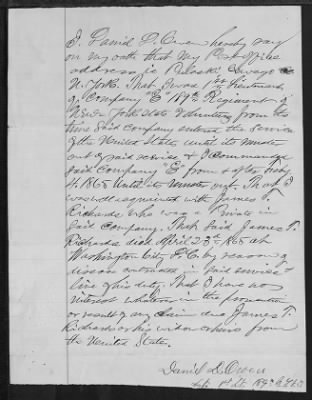 I, David L. Owen hereby say
on my oath that my Post office
address is Pulaski Oswego Co
N. York. That I was 1st Lieutenant
of Company "E" 189th Regiment
of New York State Volunteers from the
time said Company entered the service
of the United States until its muster
out of said service & I commanded
said Company "E" from & after
4, 1865 until its muster out. That I
was well acquainted with James T.
Richards who was a Private in
said Company. That said James T.
Richards died April 23d 1865 at
Washington City D.C. by reason of
disease contracted in said service &
line of his duty. That I have no
interest whatever in the prosecution
or result of any claim due James T.
Richards or his widow or heirs from
the United States.
Daniel L. Owen
1st Lt. 189th